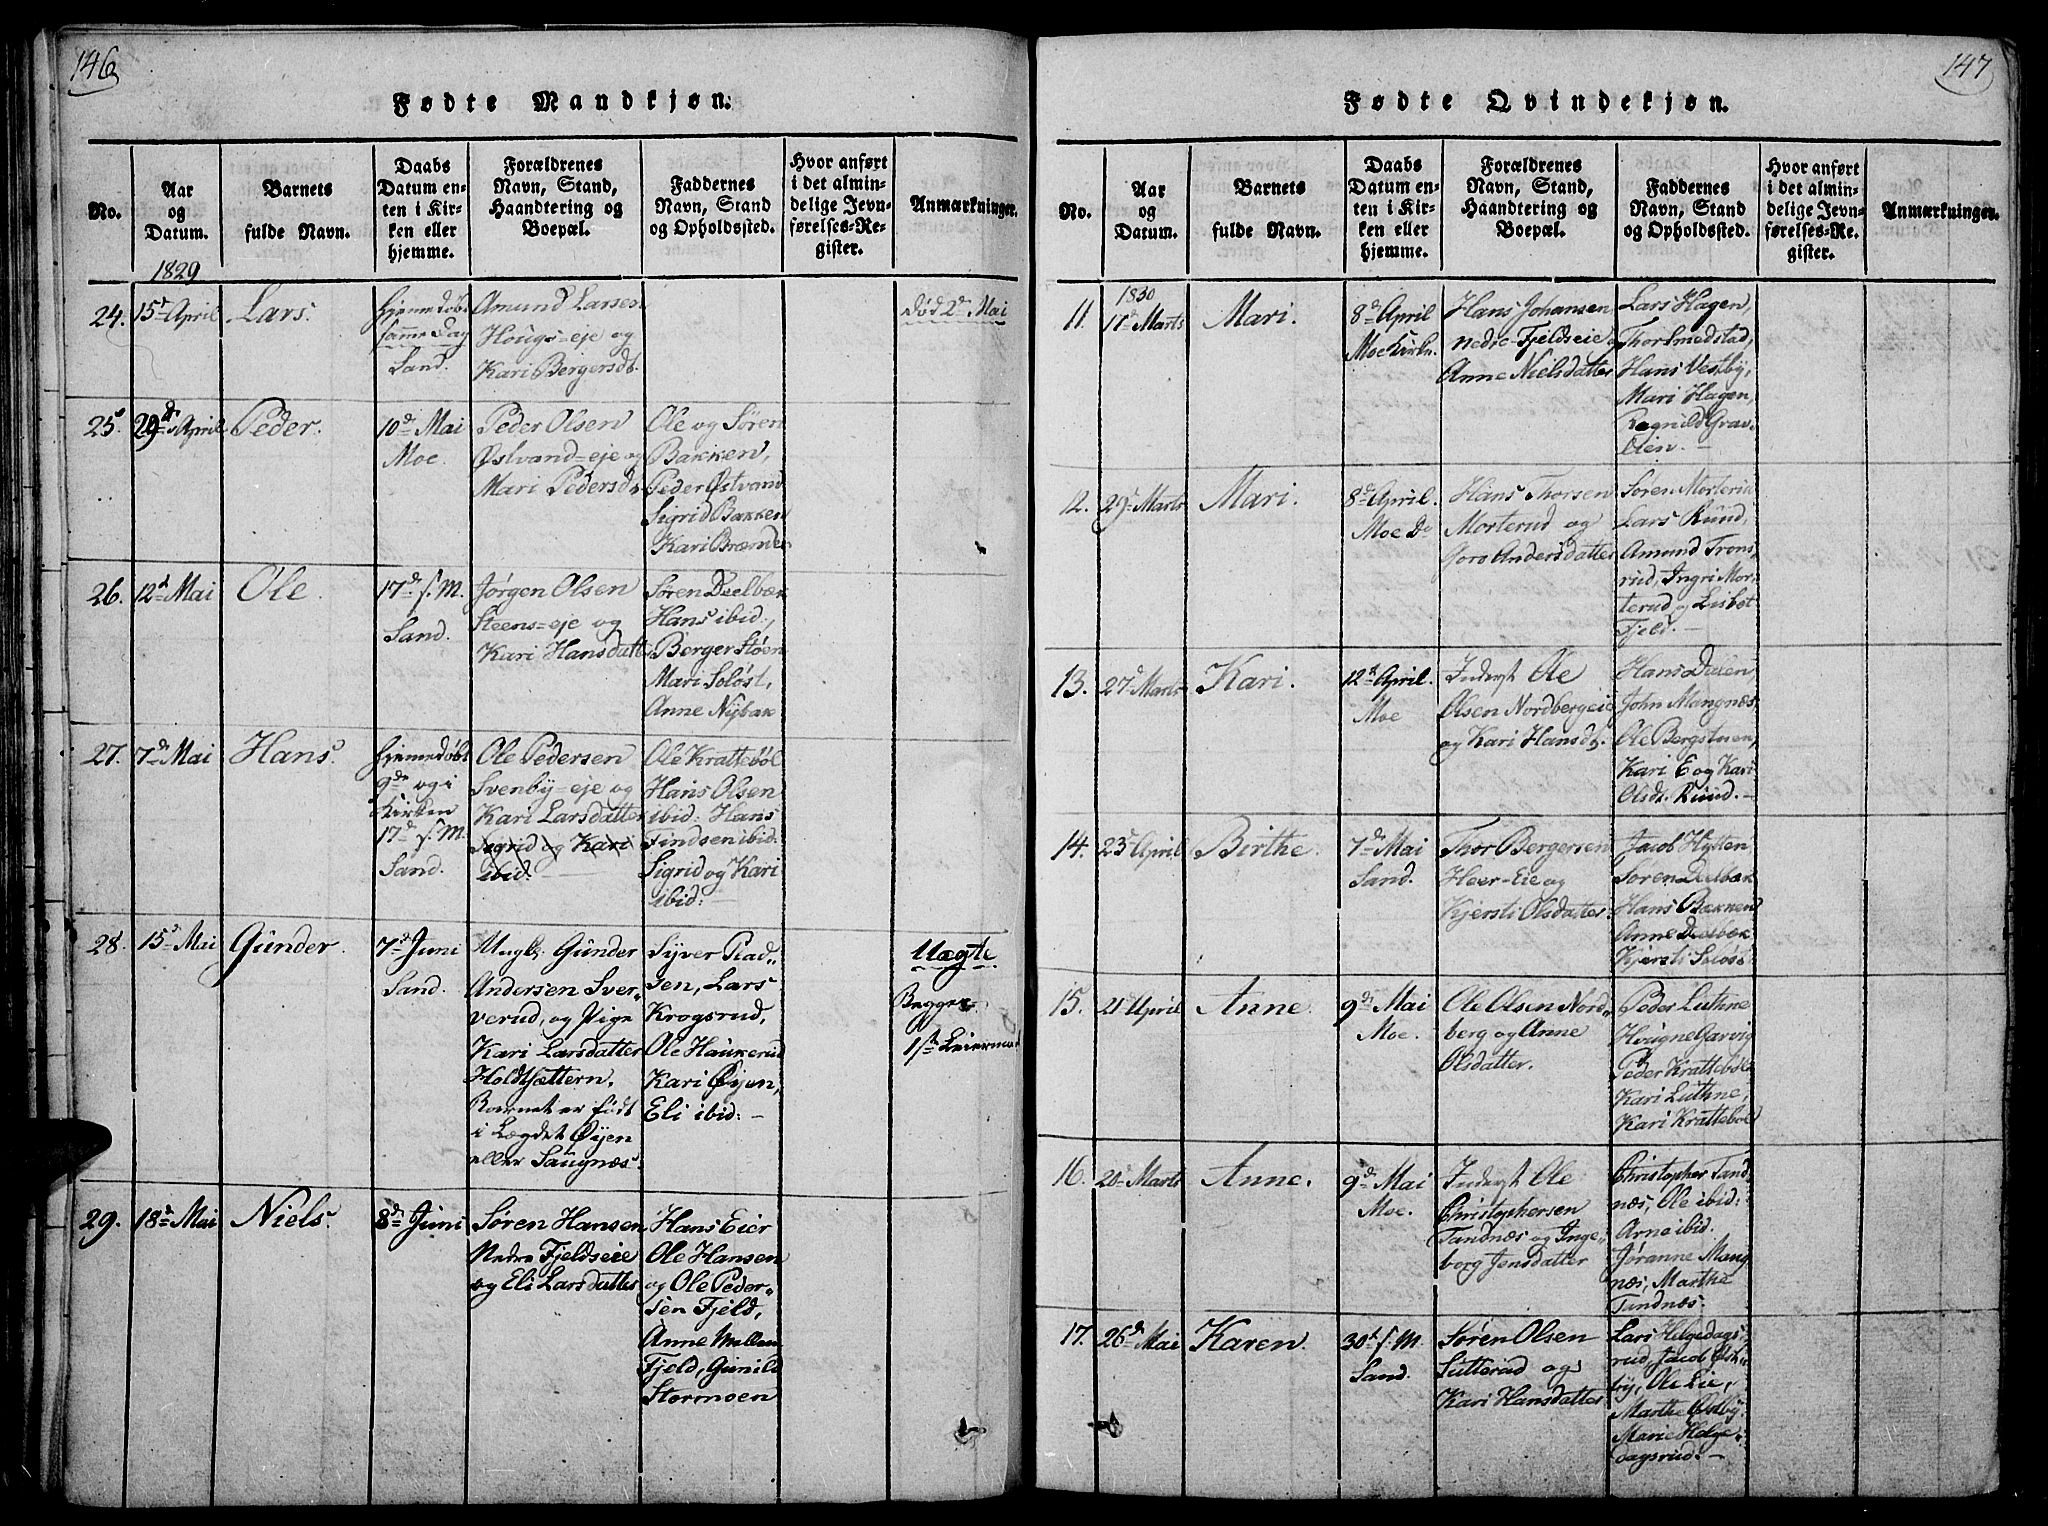 146
Fødte Mandkjøn.
No.
Aar
og
Datum.
Barnets
fulde Navn.
Daabs
Datum en-
ten i Kir-
ken eller
hjemme.
Forældrenes
Navn, Stand,
Haandtering og
Boepæl.
Faddernes
Navn, Stand
og Opholdssted.
Hvor anført
i det almin-
delige Jevn-
førelses-Re-
gister.
Anmærkninger.
1829
24.
15d April
Lars.
Hjemmedøbt
samme Dag
Sand.
Amund Larsen
Hougs-eje og
Kari Bergersdt.
død 2d Mai
25.
29d April
Peder.
10d Mai
Moe.
Peder Olsen
Østvand-eje og
Mari Pedersdt
Ole og Søren
Bakken,
Peder Østvand
Sigrid Bakken
Kari Brænde
26.
12d Mai
Ole.
17d s. M.
Sand.
Jørgen Olsen
Steens-eje og
Kari Hansdatter
Søren Deelbæk
Hans ibid.,
Berger Støen
Mari Soløst,
Anne Nybak
27.
7d Mai
Hans.
Hjemmedøbt
9d og i
Kirken
17d s. M.
Sand.
Ole Pedersen
Svenby-eje og
Kari Larsdatter
Sigrid og Kari
ibid.
Ole Kratteböl
Hans Olsen
ibid: Hans
Findsen ibid:
Sigrid og Kari
ibid:
28.
15d Mai
Gunder.
7d Juni
Sand.
Ungk. Gunder
Andersen Sver-
verud, og Pige
Kari Larsdatter
Holdtsættern.
Barnet er født
i Lægdet Øyen
eller Saugnæs.
Syver Plad-
sen, Lars
Krogsrud,
Ole Haukerud
Kari Øyen,
Eli ibid:
Uægte
Begges
1ste Leiermaal
29.
18d Mai
Niels.
8d Juni
Søren Hansen
Nedre Fjeldseie
og Eli Larsdatter
Hans Eier
Ole Hansen
og Ole Peder-
sen Fjeld,
Anne Mellem
Fjeld, Gunild
Stormoen
147
Fødte Qvindekjøn.
No.
Aar
og
Datum.
Barnets
fulde Navn.
Daabs
Datum en-
ten i Kir-
ken eller
hjemme.
Forældrenes
Navn, Stand,
Haandtering og
Boepæl.
Faddernes
Navn, Stand
og Opholdssted.
Hvor anført
i det almin-
delige Jevn-
førelses-Re-
gister.
Anmærkninger.
1830
11.
11d Marts
Mari.
8d April
Moe Kirke.
Hans Johansen
nedre-Fjeldseie og
Anne Nielsdatter
Lars Hagen,
Thor Smedstad,
Hans Vestby,
Mari Hagen,
Ragnild Grav-
lien.
12.
29d Marts
Mari.
8d April.
Moe Do
Hans Thorsen
Morterud og
Goro Andersdatter
Søren Morterud
Lars Rund,
Amund Trons-
rud, Ingri Mor-
terud og Lisbet
Fjeld.
13.
27d Marts
Kari.
12d April.
Moe
Inderst Ole
Olsen Nordbergeie
og Kari Hansdt.
Hans Dalen
John Mangnæs
Ole Bergstuen,
Kari E og Kari
Olsdt. Rund.
14.
23d April
Birthe.
7d Mai
Sand.
Thor Bergersen
Heer-Eie og
Kjersti Olsdatter
Jacob Hytten
Søren Deelbæk
Hans Bakken
Anne Deelbæk
Kjersti Soløst
15.
21d April
Anne.
9d Mai
Moe.
Ole Olsen Nord-
berg og Anne
Olsdatter.
Peder Luthne
Hougne Garvig
Peder Kratteböl
Kari Luthne,
Kari Kratteböl
16.
20d Marts
Anne.
9d Mai
Moe.
Inderst Ole
Christophersen
Tandnæs og Inge-
borg Jensdatter
Christopher Tand-
næs, Ole ibid:
Arne ibid.
Jøranne Mang-
næs, Marthe
Tandnæs.
17.
26d Mai
Karen.
30d s. M.
Sand.
Søren Olsen
Sutterud og
Kari Hansdatter
Lars Helgedags-
rud, Jacob Øst-
by, Ole Lie,
Marthe Østby.
Marie Helge-
dagsrud.